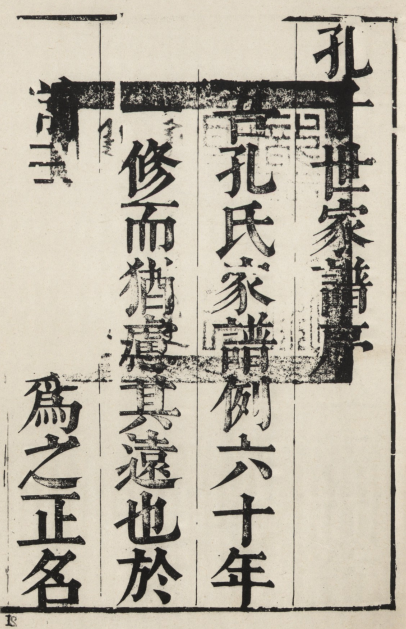 孔子世家譜序
吾孔氏家譜例六十年
修而猶慮其遠也於
爲之正名